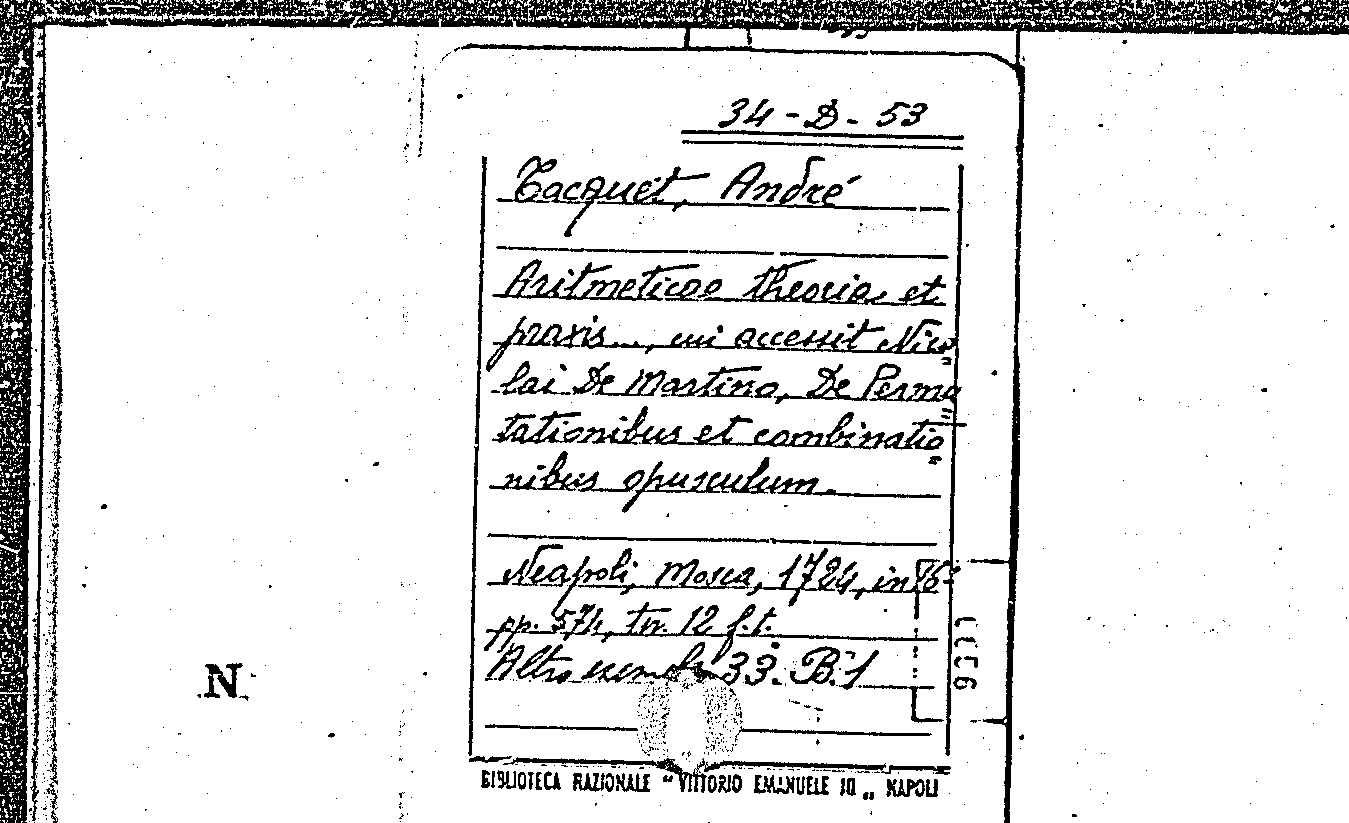 34-D-53
Tacquet, André
Aritmeticae theoria et
praxis..., cui accessit Nico„
lai De Martino, De Permu„
tationibus et combinatio„
nibus opusculum.
Neapoli, Mosca, 1724, in 16º
pp. 574, tv. 12 f.t.
Altro esempl. 33. B. 1
N
BIBLIOTECA NAZIONALE "VITTORIO EMANUELE III„ NAPOLI